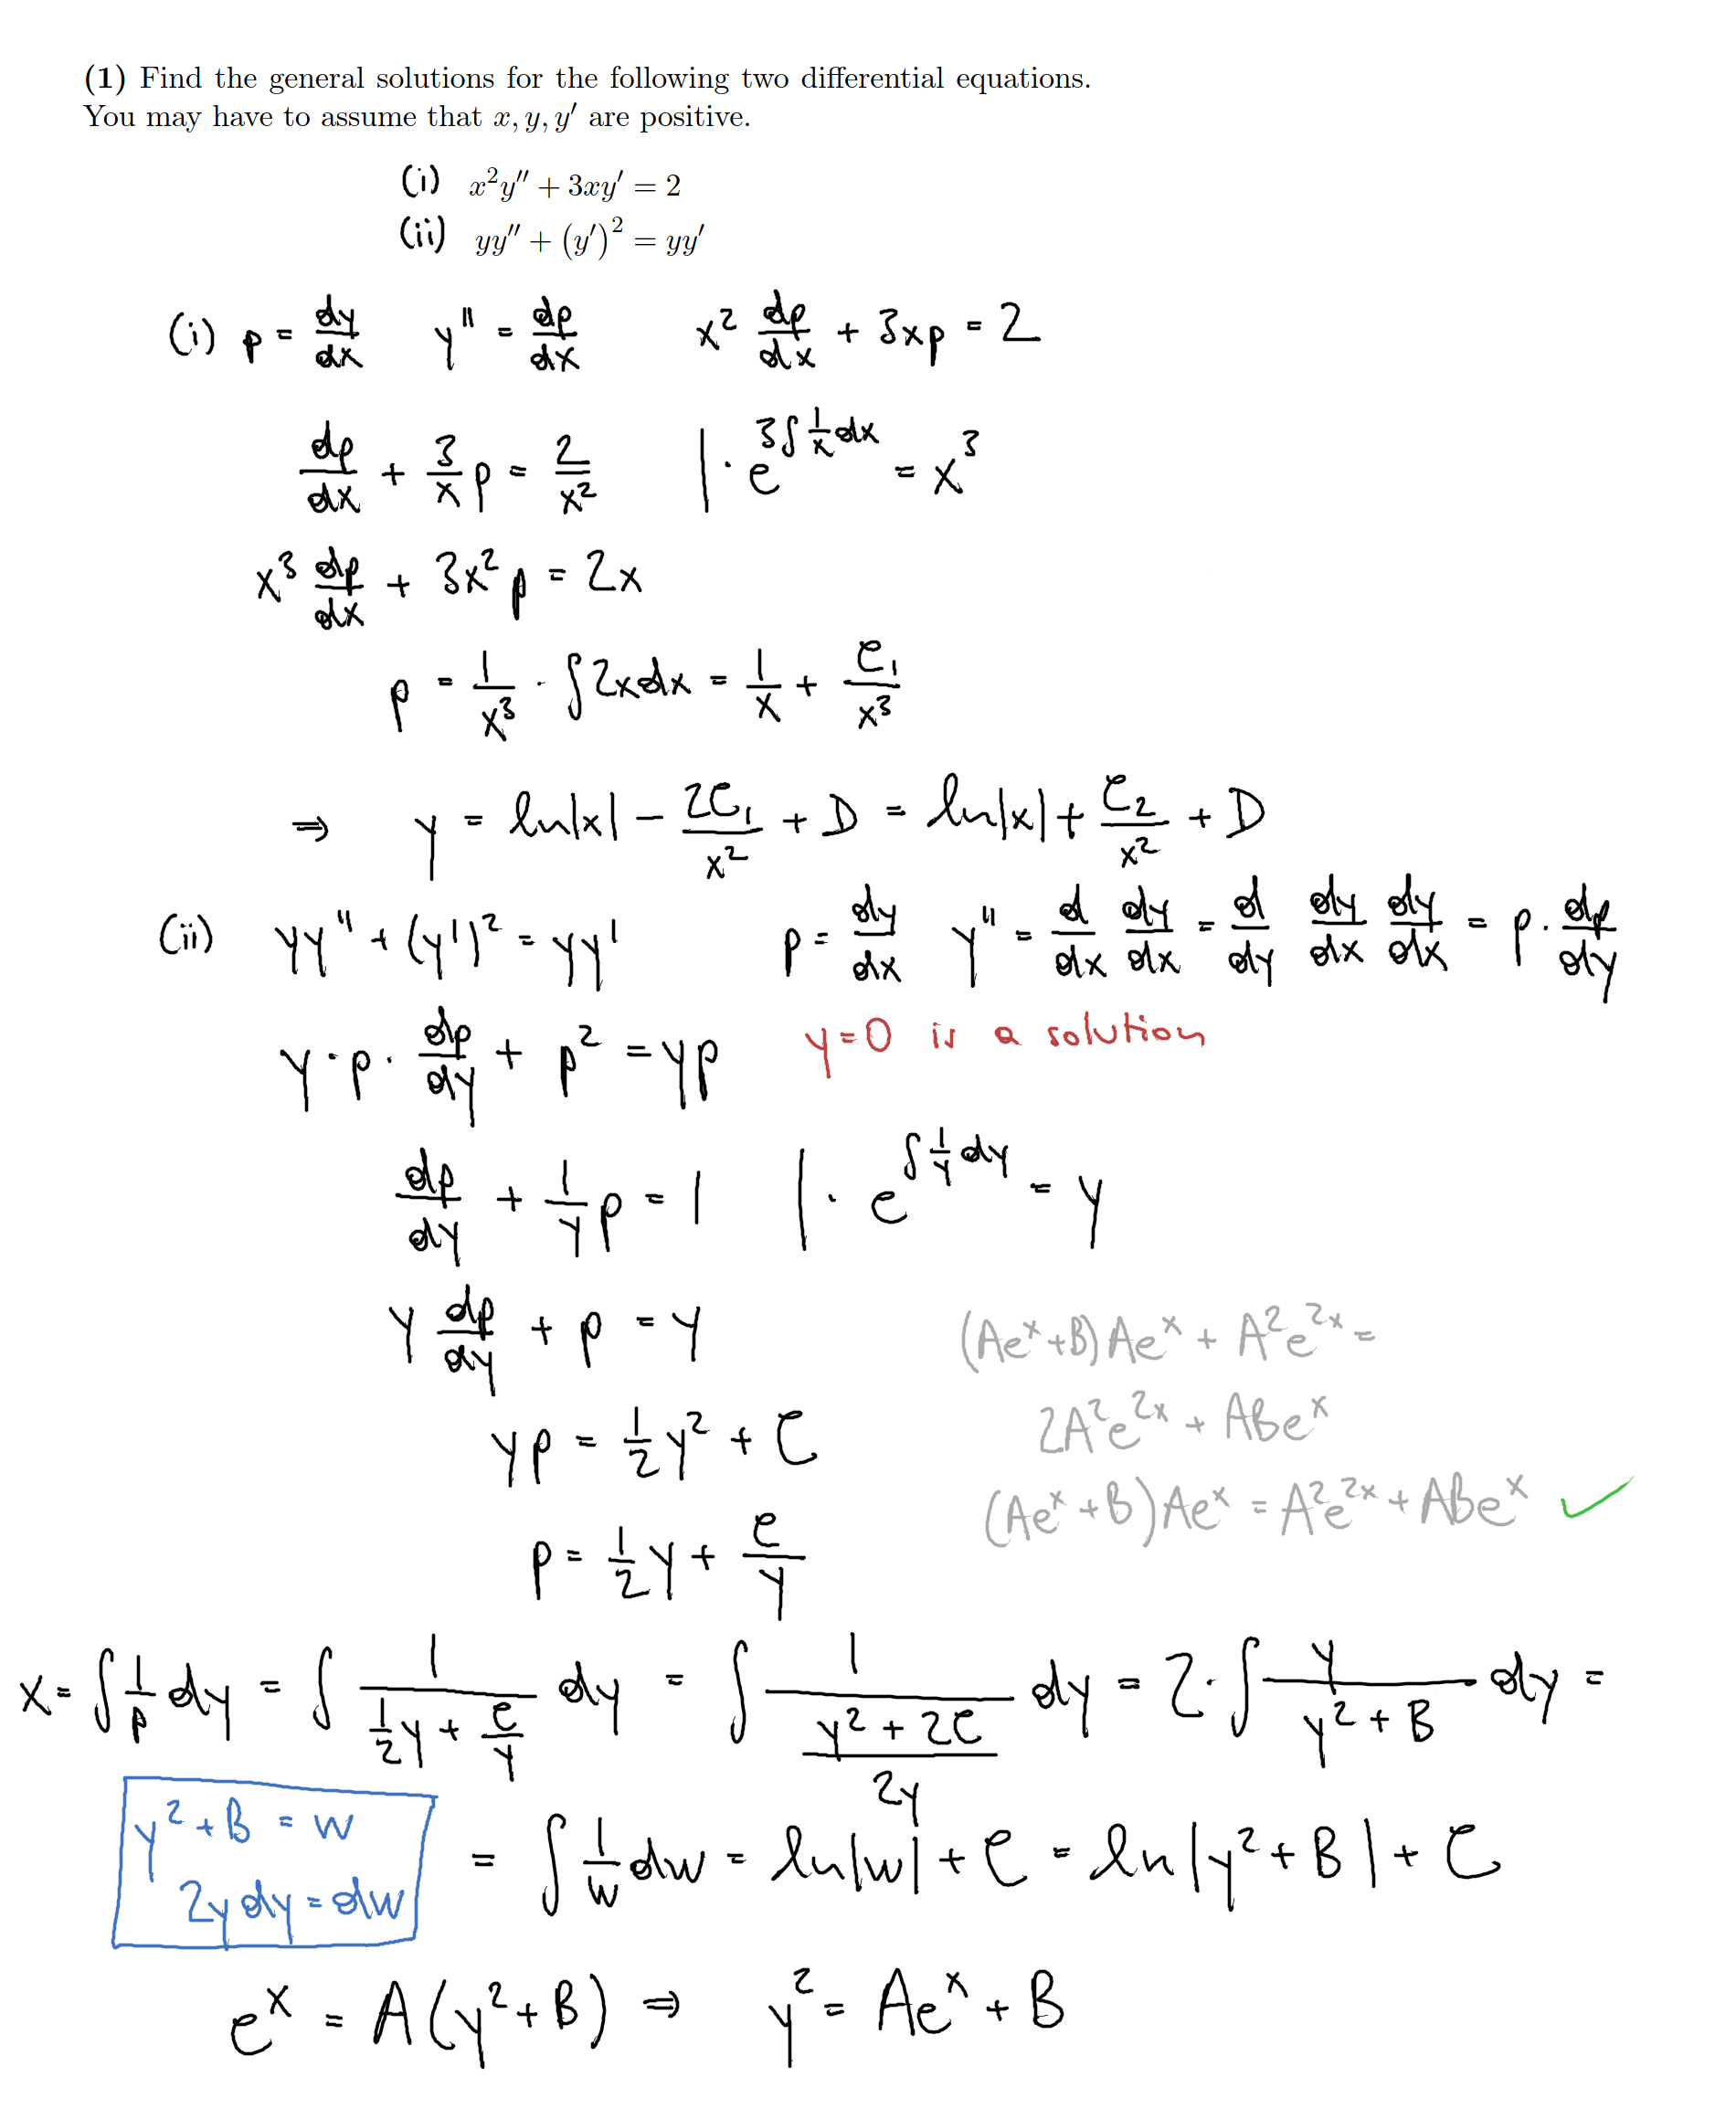 (1) Find the general solutions for the following two differential equations.
You may have to assume that x, y, y′ are positive.
(i) x²y″ + 3xy′ = 2
(ii) yy″ + (y′)² = yy′
(i) p = dy/dx y″ = dp/dx x² dp/dx + 3xp = 2
dp/dx + 3/x p = 2/x² | · e^(3∫ 1/x dx) = x³
x³ dp/dx + 3x² p = 2x
p = 1/x³ · ∫2xdx = 1/x + C₁/x³
⇒ y = ln|x| − 2C₁/x² + D = ln|x| + C₂/x² + D
(ii) yy″ + (y′)² = yy′ p = dy/dx y″ = d/dx dy/dx = d/dy dy/dx dy/dx = p · dp/dy
y · p · dp/dy + p² = yp y=0 is a solution
dp/dy + 1/y p = 1 | · e^(∫ 1/y dy) = y
y dp/dy + p = y (Ae^x + B) Ae^x + A²e^(2x) =
2A²e^(2x) + ABe^x
yp = 1/2 y² + C
(Ae^x + B) Ae^x = A²e^(2x) + ABe^x ✓
p = 1/2 y + C/y
x = ∫ 1/p dy = ∫ 1/(1/2 y + C/y) dy = ∫ 1/((y² + 2C)/2y) dy = 2 · ∫ y/(y² + B) dy =
y² + B = w
2y dy = dw
= ∫ 1/w dw = ln|w| + C = ln|y² + B| + C
e^x = A(y² + B) ⇒ y² = Ae^x + B